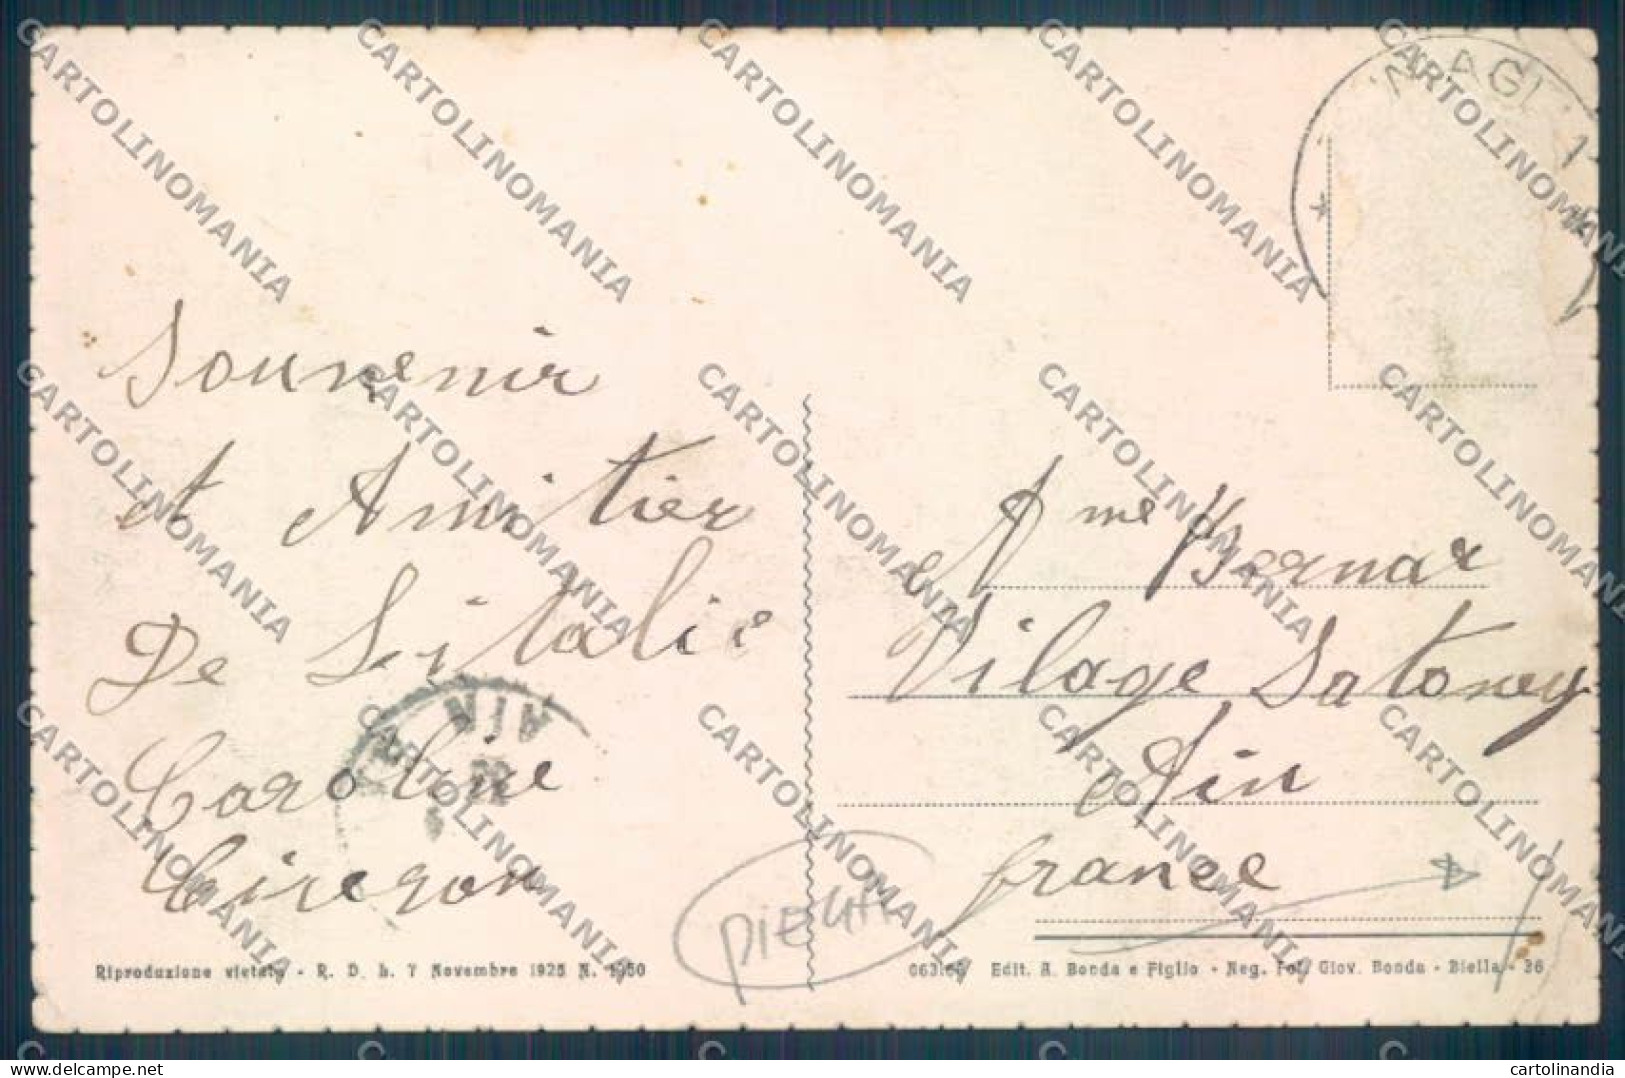 Souvenir
et Amitier
De Litalie
Caroline
AIN
Mme Bernar
Vilage Satoney
Ain
france
PIEGA
Riproduzione vietata - R. D. L. 7 Novembre 1925 N. 1950
Edit. A. Bonda e Figlio - Neg. Fot. Giov. Bonda - Biella - 36
CARTOLINOMANIA
cartolinandia